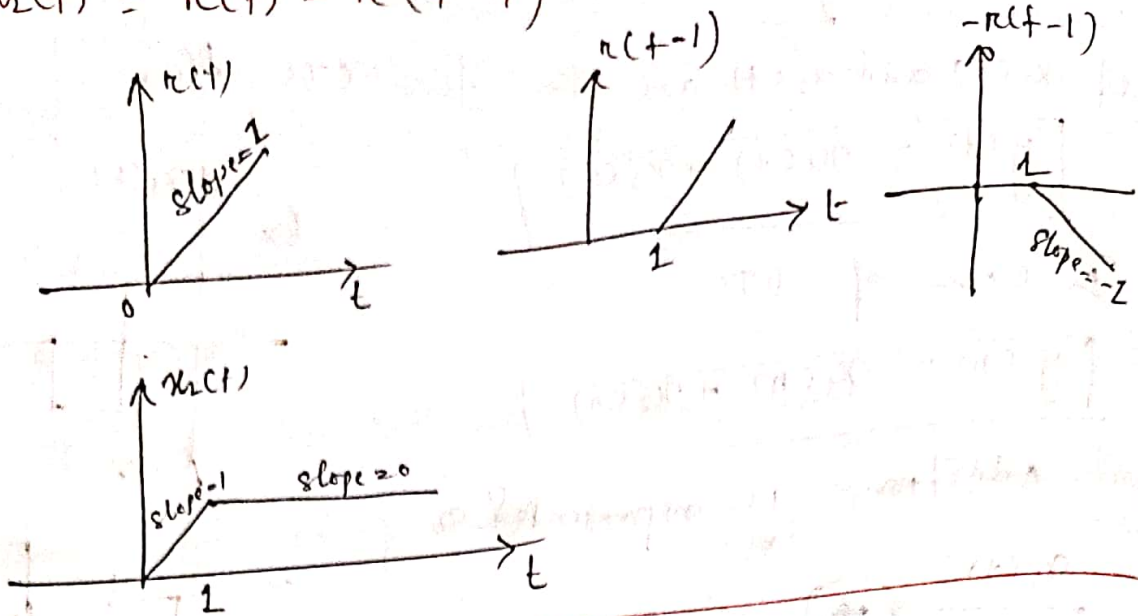 x₂(t) = r(t) - r(t-1)
r(t)
slope=1
0
t
r(t-1)
1
t
-r(t-1)
1
slope=-2
x₂(t)
slope=1
slope=0
1
t